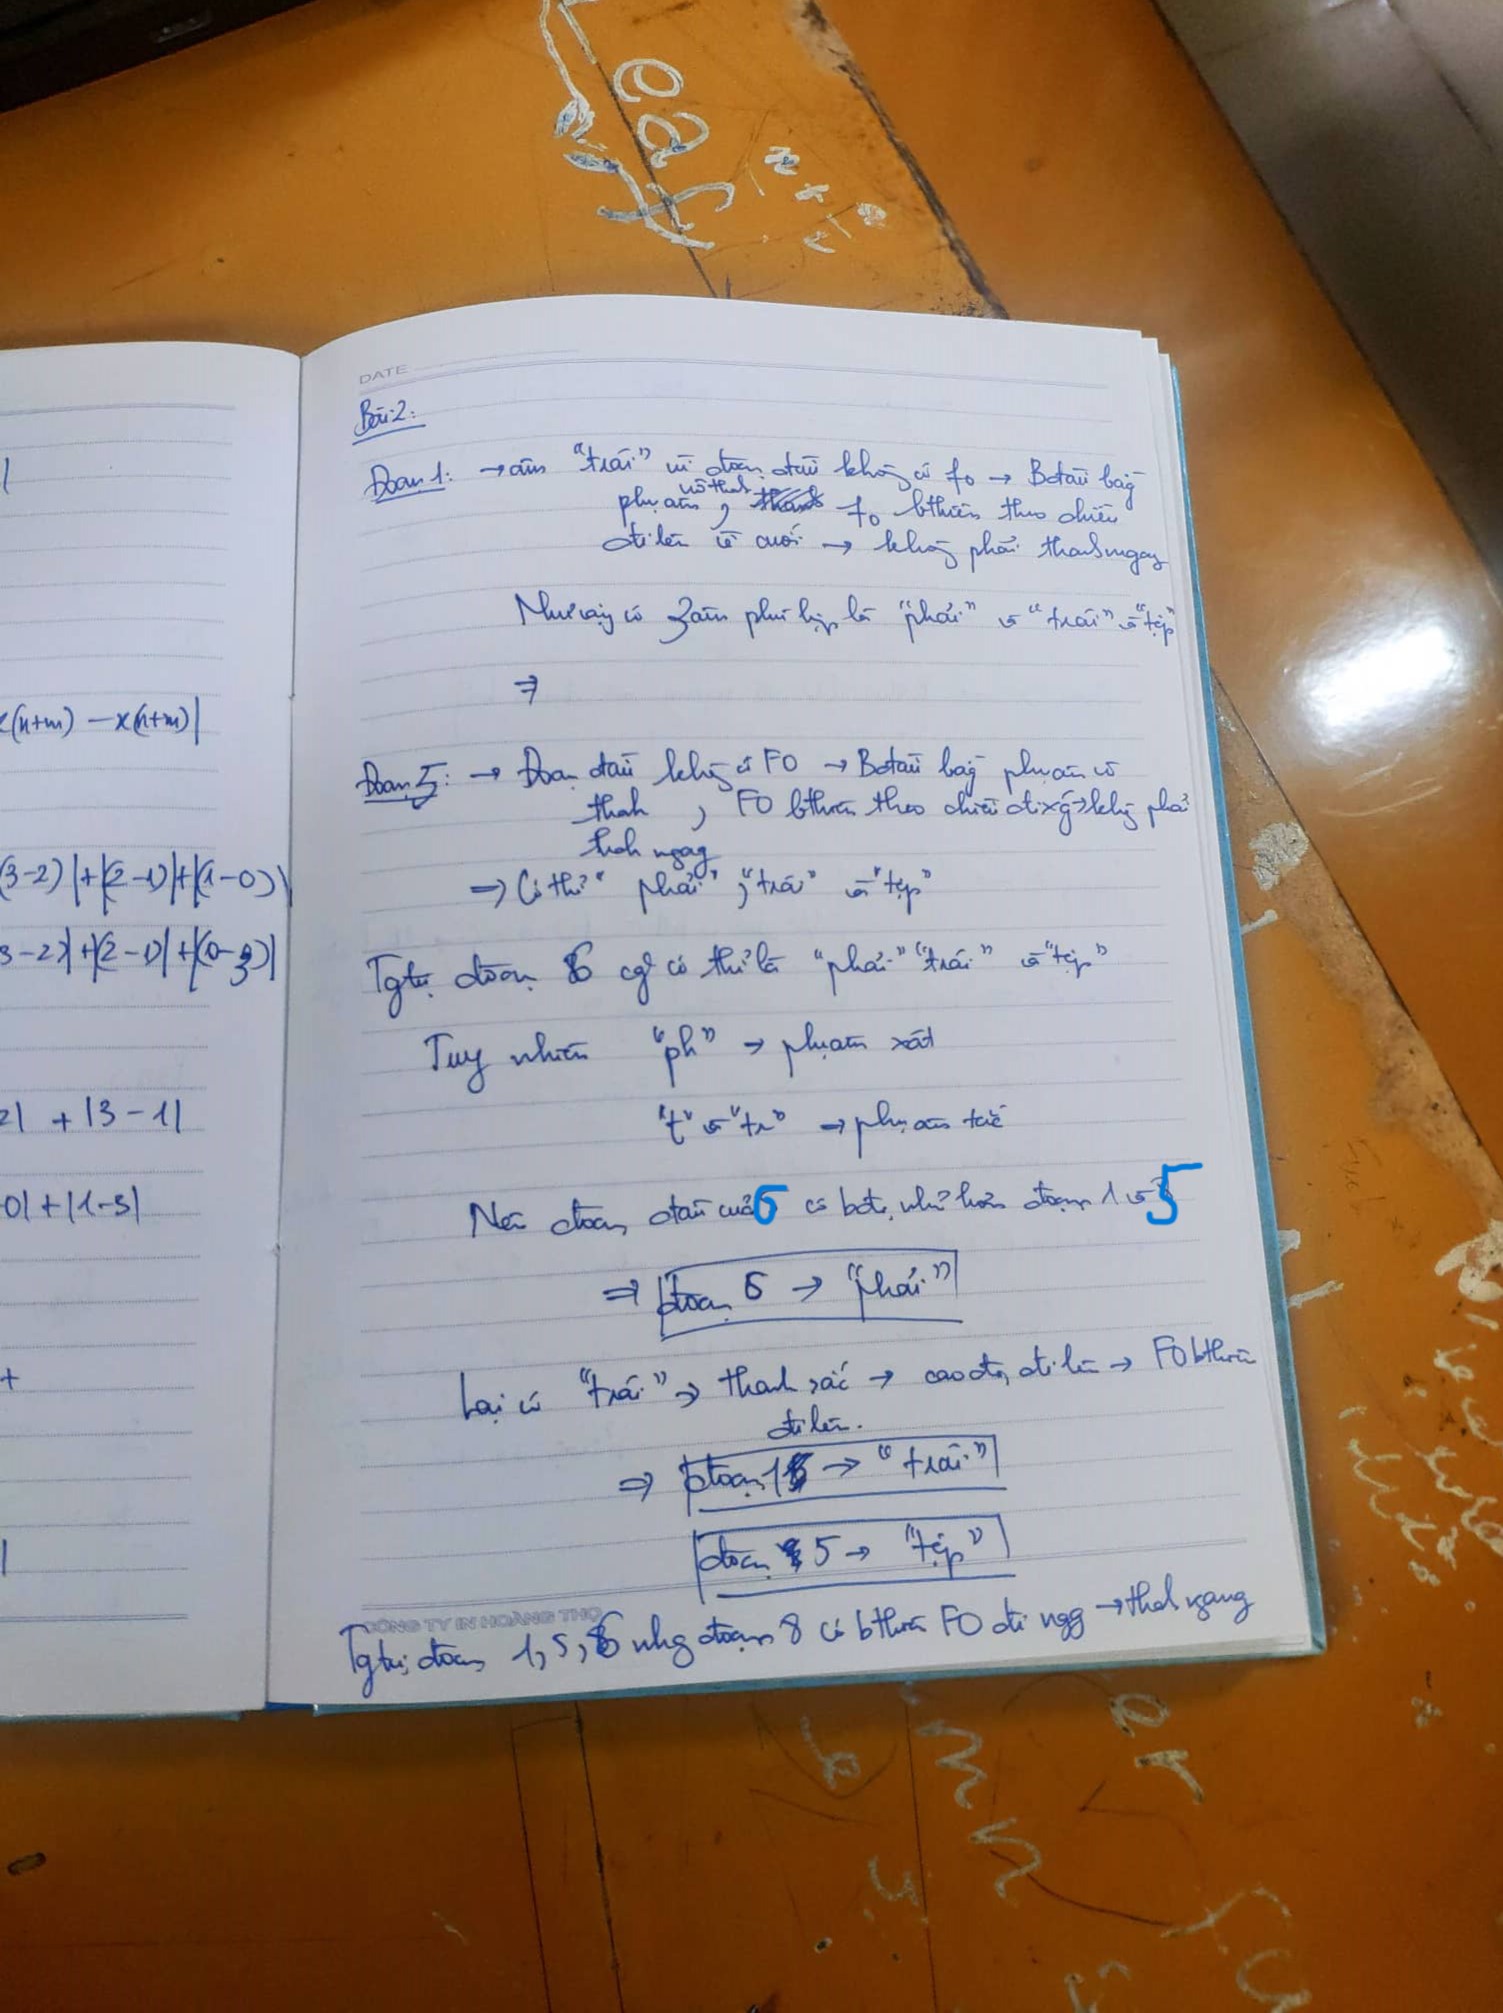 DATE
Bài 2:
Đoạn 1: → âm "trái" vì đoạn đầu không có f0 → Bắt đầu bằg
phụ âm vô thah, f0 bthiên theo chiều
đi lên về cuối → không phải thanh ngang
Như vậy có 3 âm phù hợp là "phải" và "trái" và "tệp"
⇒
Đoạn 5: → Đoạn đầu khôg có F0 → Bắt đầu bằg phụ âm vô
thah, F0 bthiên theo chiều đi xg → khôg phải
thah ngag
⇒ Có thể "phải", "trái" và "tệp"
Tg tự đoạn 6 cg có thể là "phải" "trái" và "tệp"
Tuy nhiên "ph" → phụ âm xát
"t" và "tr" → phụ âm tắc
Nên đoạn đầu của 6 có bđộ nhỏ hơn đoạn 1 và 5
⇒ đoạn 6 → "phải"
Lại có "trái" → thanh sắc → cao độ đi lên → F0 bthiên
đi lên.
⇒ đoạn 1 → "trái"
đoạn 5 → "tệp"
CÔNG TY IN HOÀNG THỌ
Tg tự đoạn 1, 5, 6 nhg đoạn 8 có bthiên F0 đi ngg → thah ngang
x(n+m) - x(n+m)|
(3-2)|+|(2-1)|+|(1-0)|
3-2)|+|(2-1)|+|(0-3)|
2| + |3-1|
-0| + |1-3|
+